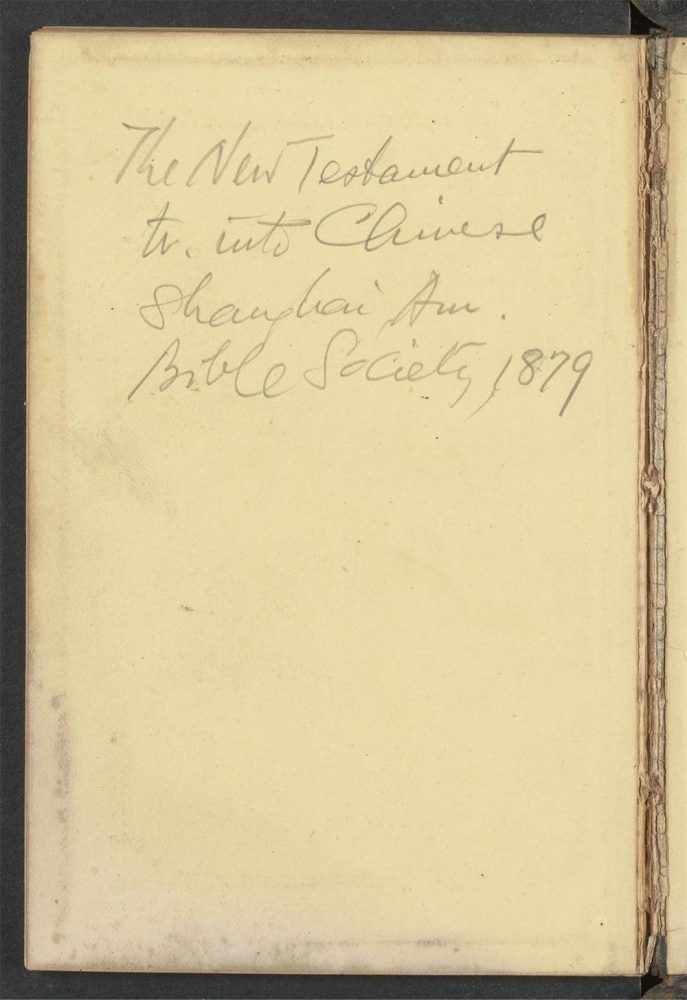 The New Testament
tr. into Chinese
Shanghai, Am.
Bible Society, 1879